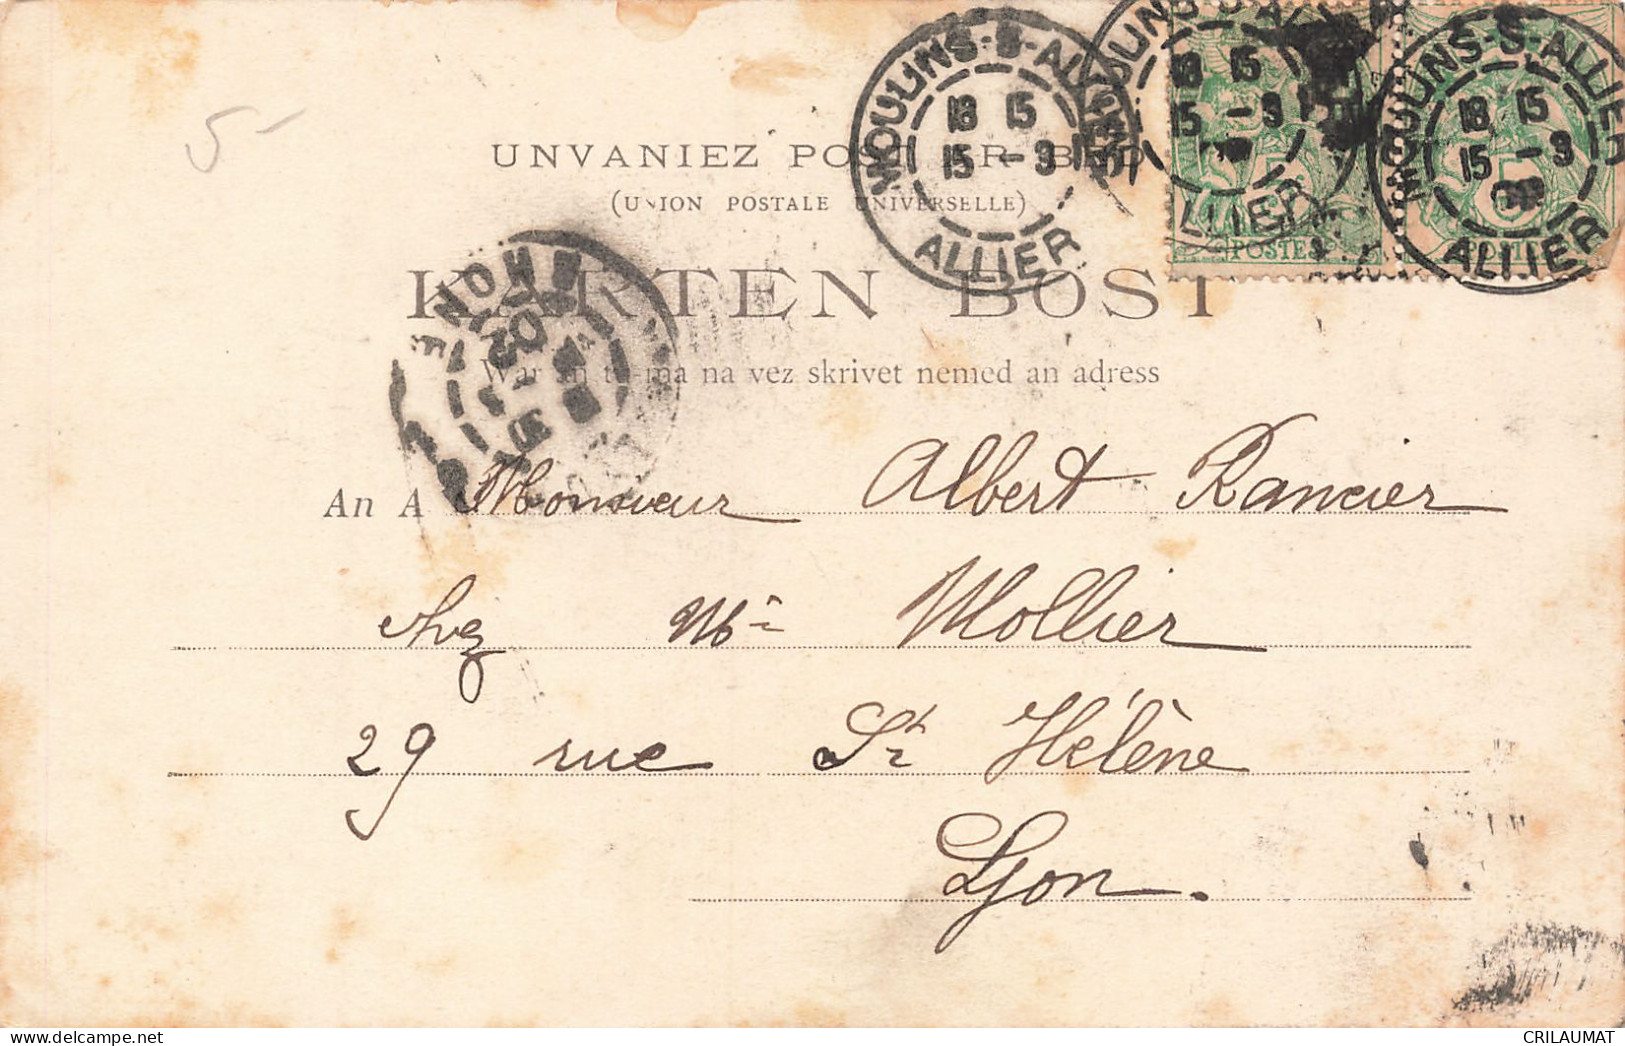 5-
UNVANIEZ POST AR BED
(UNION POSTALE UNIVERSELLE)
KARTEN BOST
War an tu-ma na vez skrivet nemed an adress
MOULINS-S-ALLIER
18 15
15 - 9
ALLIER
MOULINS-S-ALLIER
18 15
15 - 9
ALLIER
MOULINS-S-ALLIER
18 15
15 - 9
ALLIER
POSTES
5
RHONE
An A Monsieur Albert Rancier
chez Mr Mollier
29 rue St Hélène
Lyon.
CRILAUMAT